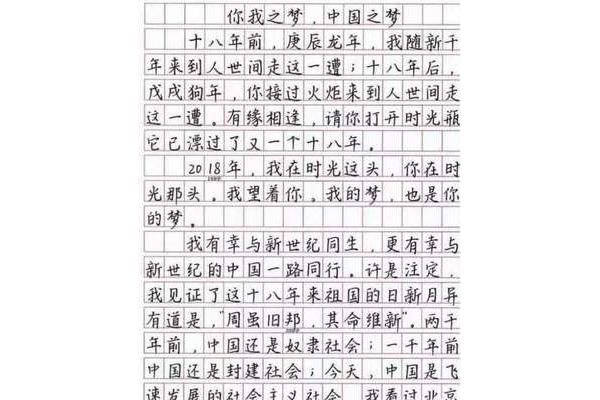 你我之梦，中国之梦
十八年前，庚辰龙年，我随新千
年来到人世间走这一遭；十八年后，
戊戌狗年，你接过火炬来到人世间走
这一遭。有缘相逢，请你打开时光瓶
它已漂过了又一个十八年。
2018年，我在时光这头，你在时
光那头。我望着你。我的梦，也是你
的梦。
我有幸与新世纪同生，更有幸与
新世纪的中国一路同行。许是注定，
我见证了这十八年来祖国的日新月异
有道是，“周虽旧邦，其命维新”。两千
年前，中国还是奴隶社会；一千年前
中国还是封建社会；今天，中国是飞
速发展的社会主义社会 我看过北京